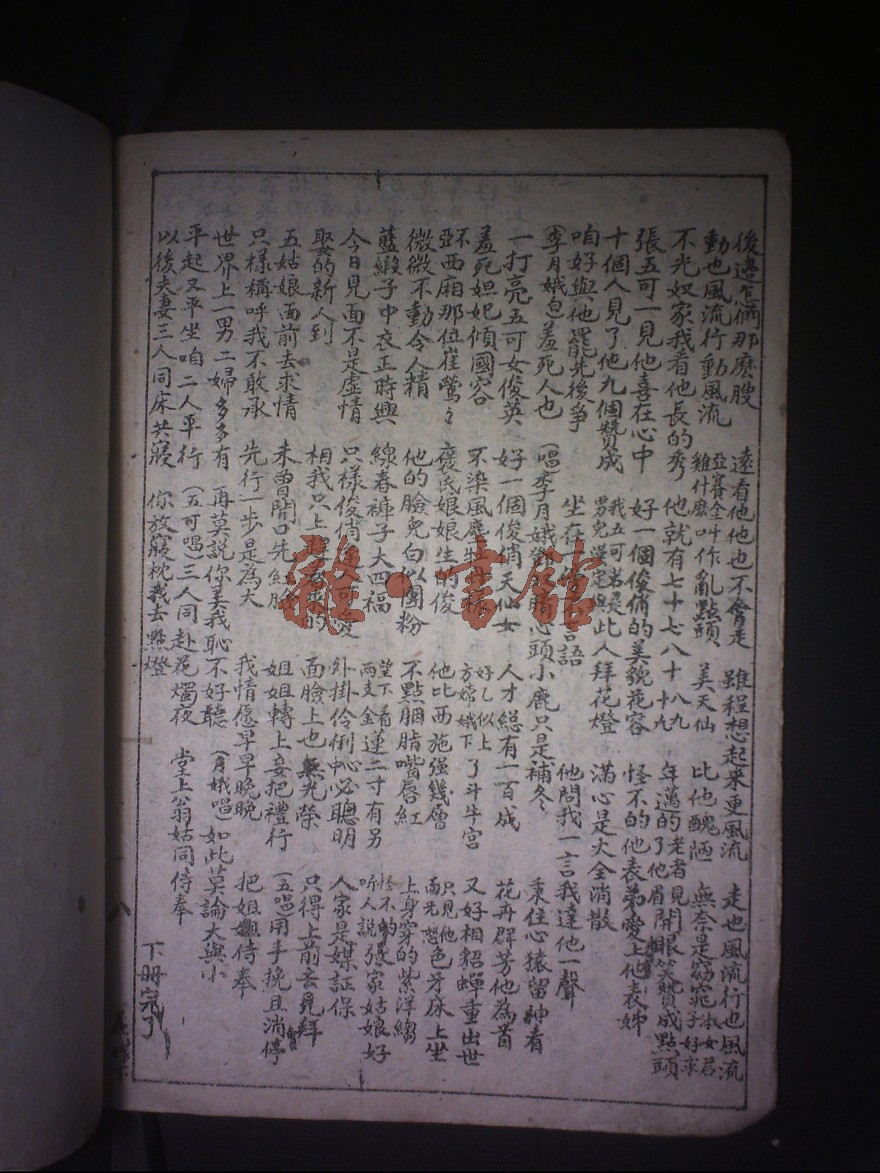 後邊怎俩那麽腰 遠看他他也不會走 雖程想起来更風流 走也風流行也風流
動也風流行動風流 亞賽全 雞什麽叫作亂點頭 美天仙 比他醜陋 無奈是窈窕淑女君子好求
不光奴家我看他長的秀 他就有七十七八十八九十九 年邁的老者見了他眉開眼笑贊成點頭
張五可一見他喜在心中 好一個俊俏的美貌花容 怪不的他表弟愛上他表姊
十個人見了他九個贊成 我五可若是男兒漢定與此人拜花燈 滿心是大全消散
咱好與他罷先後爭 坐在一旁 言語 他問我一言我達他一聲
(季月娥白)羞死人也 (唱季月娥 暗心頭小鹿只是補冬 秉住心猿留神看
一打亮五可女俊英 好一個俊俏天仙女 人才總有一百成 花冉群芳他為首
羞死妲妃傾國容 不染風塵 好似上方嫦娥下了斗牛宮 又好相貂蟬重出世
亞不西廂那位崔鶯々 褒氏娘娘生的俊 他比西施强幾層 只見他面先想色牙床上坐
微微不動令人精 他的臉兒白似團粉 不點胭脂嘴唇紅 上身穿的紫洋縐
藍緞子中衣正時興 線春褲子大四福 望下看兩支金蓮二寸有另 怪不的听人說張家姑娘好
今日見面不是虛情 只樣俊俏 可愛 外掛伶俐中心必聰明 人家是媒証保
娶的新人到 相我只上 来的 面臉上也無光榮 只得上前去見拜
五姑娘面前去求情 未曾開口先紅臉 姐姐轉上妾把禮行 (五唱)用手挽且消停
只樣稱呼我不敢承 先行一步是為大 我情愿早早晚晚 把姐姐侍奉
世界上一男二婦多多有 再莫說你美我恥不好聽 (月娥唱)如此莫論大與小
平起又平坐咱二人平行 (五可唱)三人同赴花燭夜 堂上翁姑同侍奉
以後夫妻三人同床共寢 你放寢枕我去點燈
下册完了
雜·書館
八